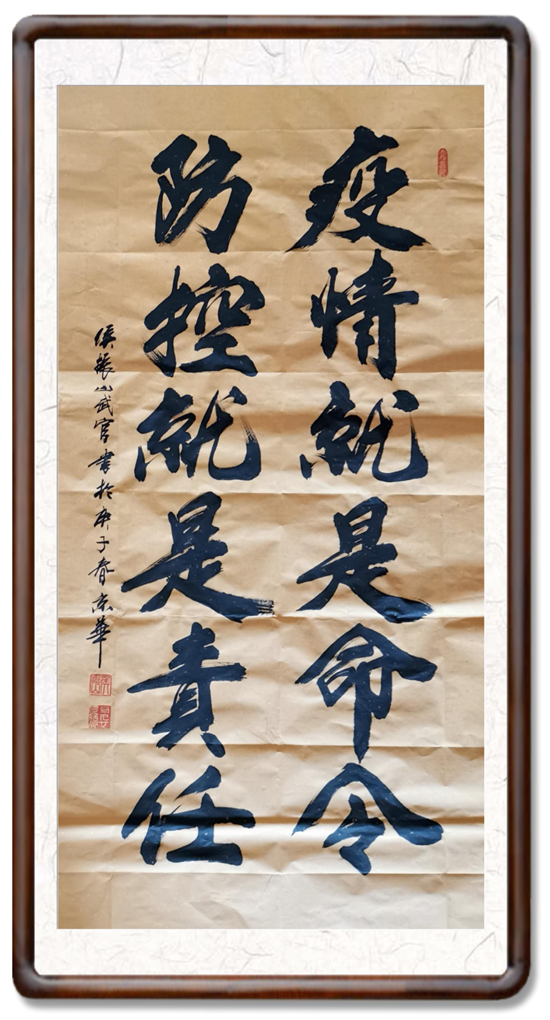 疫情就是命令
防控就是責任
侯振山武官書於庚子春京華